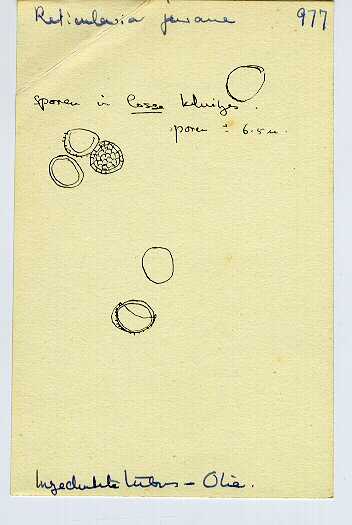 Reticularia jurana 977
sporen in losse kluitjes.
sporen ± 6.5 u.
Ingedikte tubus - Olie.